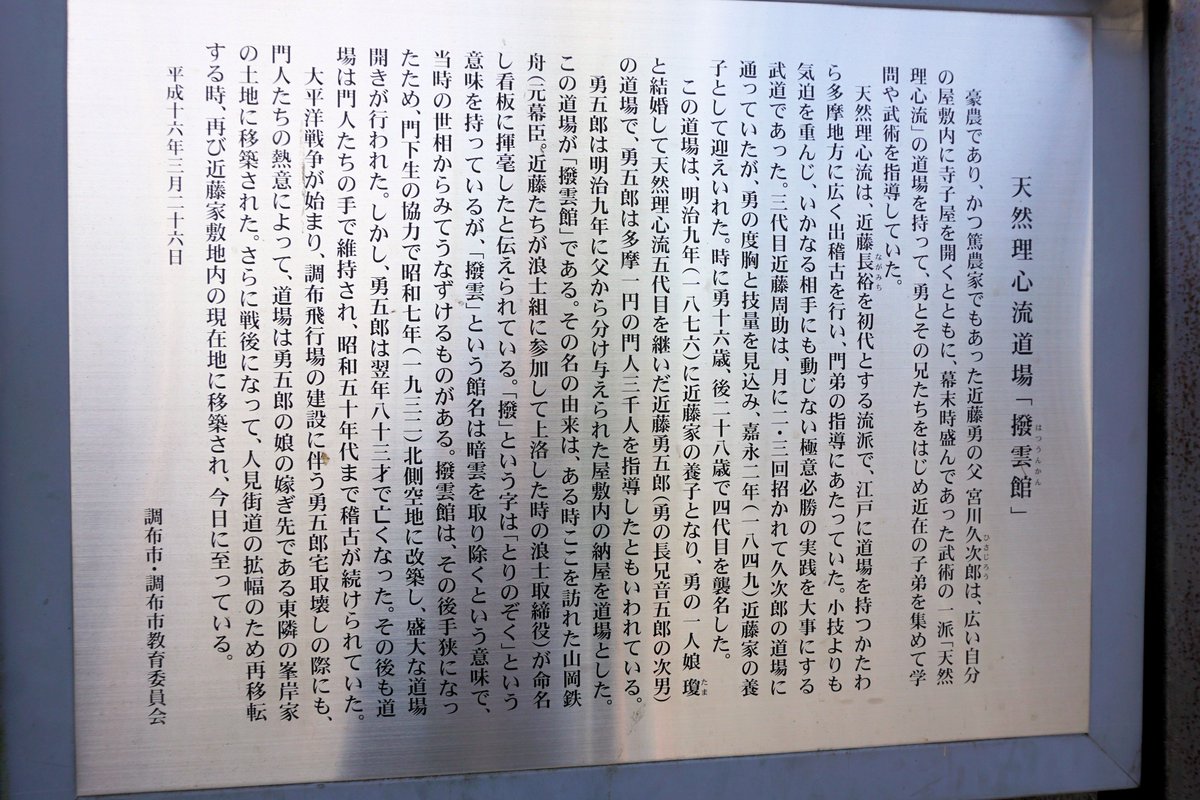 天然理心流道場「撥雲館」
はつうんかん
豪農であり、かつ篤農家でもあった近藤勇の父 宮川久次郎は、広い自分
ひさじろう
の屋敷内に寺子屋を開くとともに、幕末時盛んであった武術の一派「天然
理心流」の道場を持って、勇とその兄たちをはじめ近在の子弟を集めて学
問や武術を指導していた。
天然理心流は、近藤長裕を初代とする流派で、江戸に道場を持つかたわ
ながみち
ら多摩地方に広く出稽古を行い、門弟の指導にあたっていた。小技よりも
気迫を重んじ、いかなる相手にも動じない極意必勝の実践を大事にする
武道であった。三代目近藤周助は、月に二・三回招かれて久次郎の道場に
通っていたが、勇の度胸と技量を見込み、嘉永二年(一八四九)近藤家の養
子として迎えいれた。時に勇十六歳、後二十八歳で四代目を襲名した。
この道場は、明治九年(一八七六)に近藤家の養子となり、勇の一人娘 瓊
たま
と結婚して天然理心流五代目を継いだ近藤勇五郎(勇の長兄音五郎の次男)
の道場で、勇五郎は多摩一円の門人三千人を指導したともいわれている。
勇五郎は明治九年に父から分け与えられた屋敷内の納屋を道場とした。
この道場が「撥雲館」である。その名の由来は、ある時ここを訪れた山岡鉄
舟(元幕臣。近藤たちが浪士組に参加して上洛した時の浪士取締役)が命名
し看板に揮毫したと伝えられている。「撥」という字は「とりのぞく」という
意味を持っているが、「撥雲」という館名は暗雲を取り除くという意味で、
当時の世相からみてうなずけるものがある。撥雲館は、その後手狭になっ
たため、門下生の協力で昭和七年(一九三二)北側空地に改築し、盛大な道場
開きが行われた。しかし、勇五郎は翌年八十三才で亡くなった。その後も道
場は門人たちの手で維持され、昭和五十年代まで稽古が続けられていた。
大平洋戦争が始まり、調布飛行場の建設に伴う勇五郎宅取壊しの際にも、
門人たちの熱意によって、道場は勇五郎の娘の嫁ぎ先である東隣の峯岸家
の土地に移築された。さらに戦後になって、人見街道の拡幅のため再移転
する時、再び近藤家敷地内の現在地に移築され、今日に至っている。
平成十六年三月二十六日
調布市・調布市教育委員会